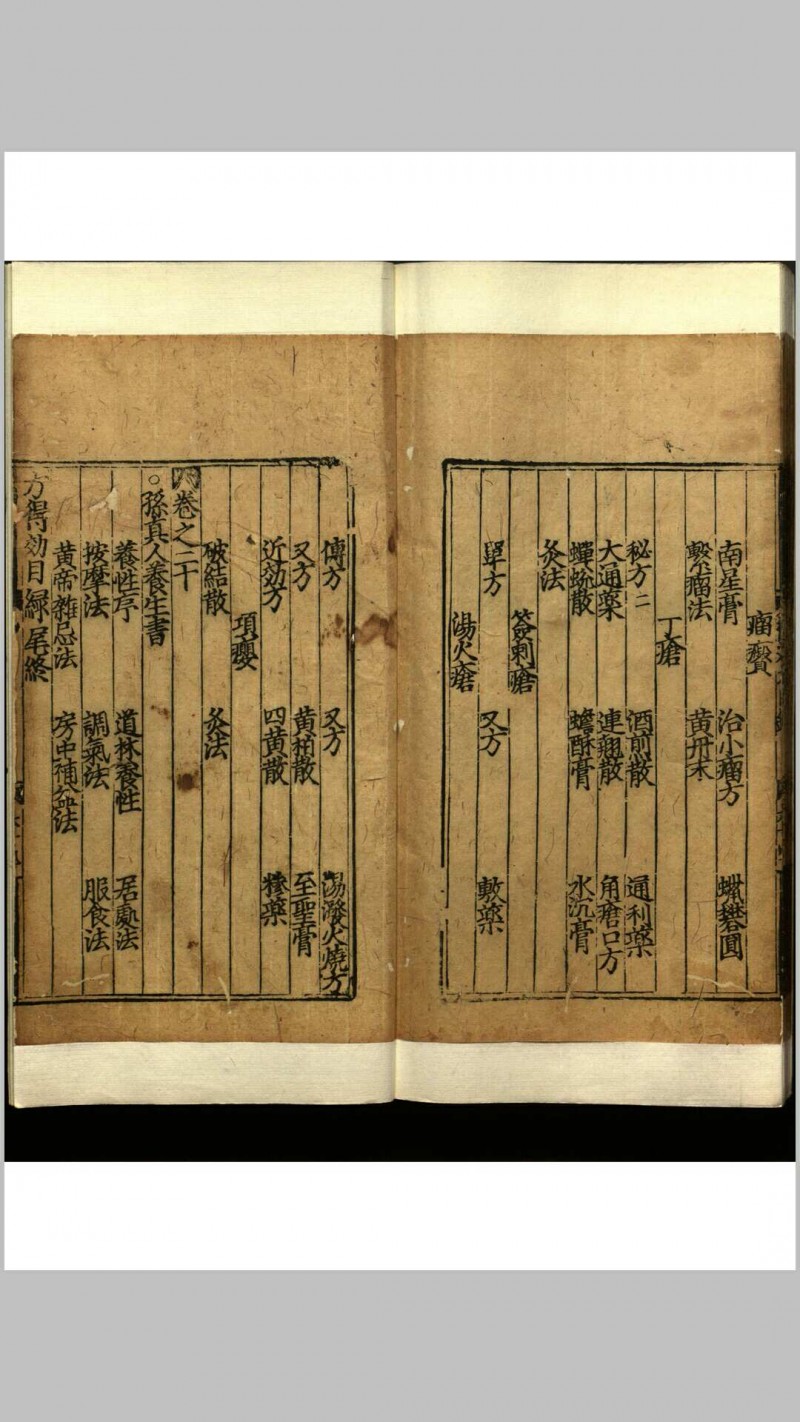 瘤贅
南星膏 治小瘤方 蠟礬圓
繫瘤法 黄丹末
丁瘡
秘方二 酒煎散 通利藥
大通藥 連翹散 角瘡口方
蟬蛻散 蟾酥膏 水沉膏
灸法
簽刺瘡
單方 又方 敷藥
湯火瘡
傅方 又方 湯潑火燒方
又方 黄栢散 至聖膏
近効方 四黄散 糝藥
項癭
破結散 灸法
卷之二十
○孫真人養生書
養性序 道林養性 居處法
按摩法 調氣法 服食法
黄帝雜忌法 房中補益法
方得効目録尾終